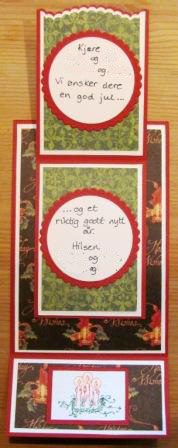 Kjære
og
og
Vi ønsker dere
en god jul...
...og et
riktig godt nytt
år.
Hilsen
og
og